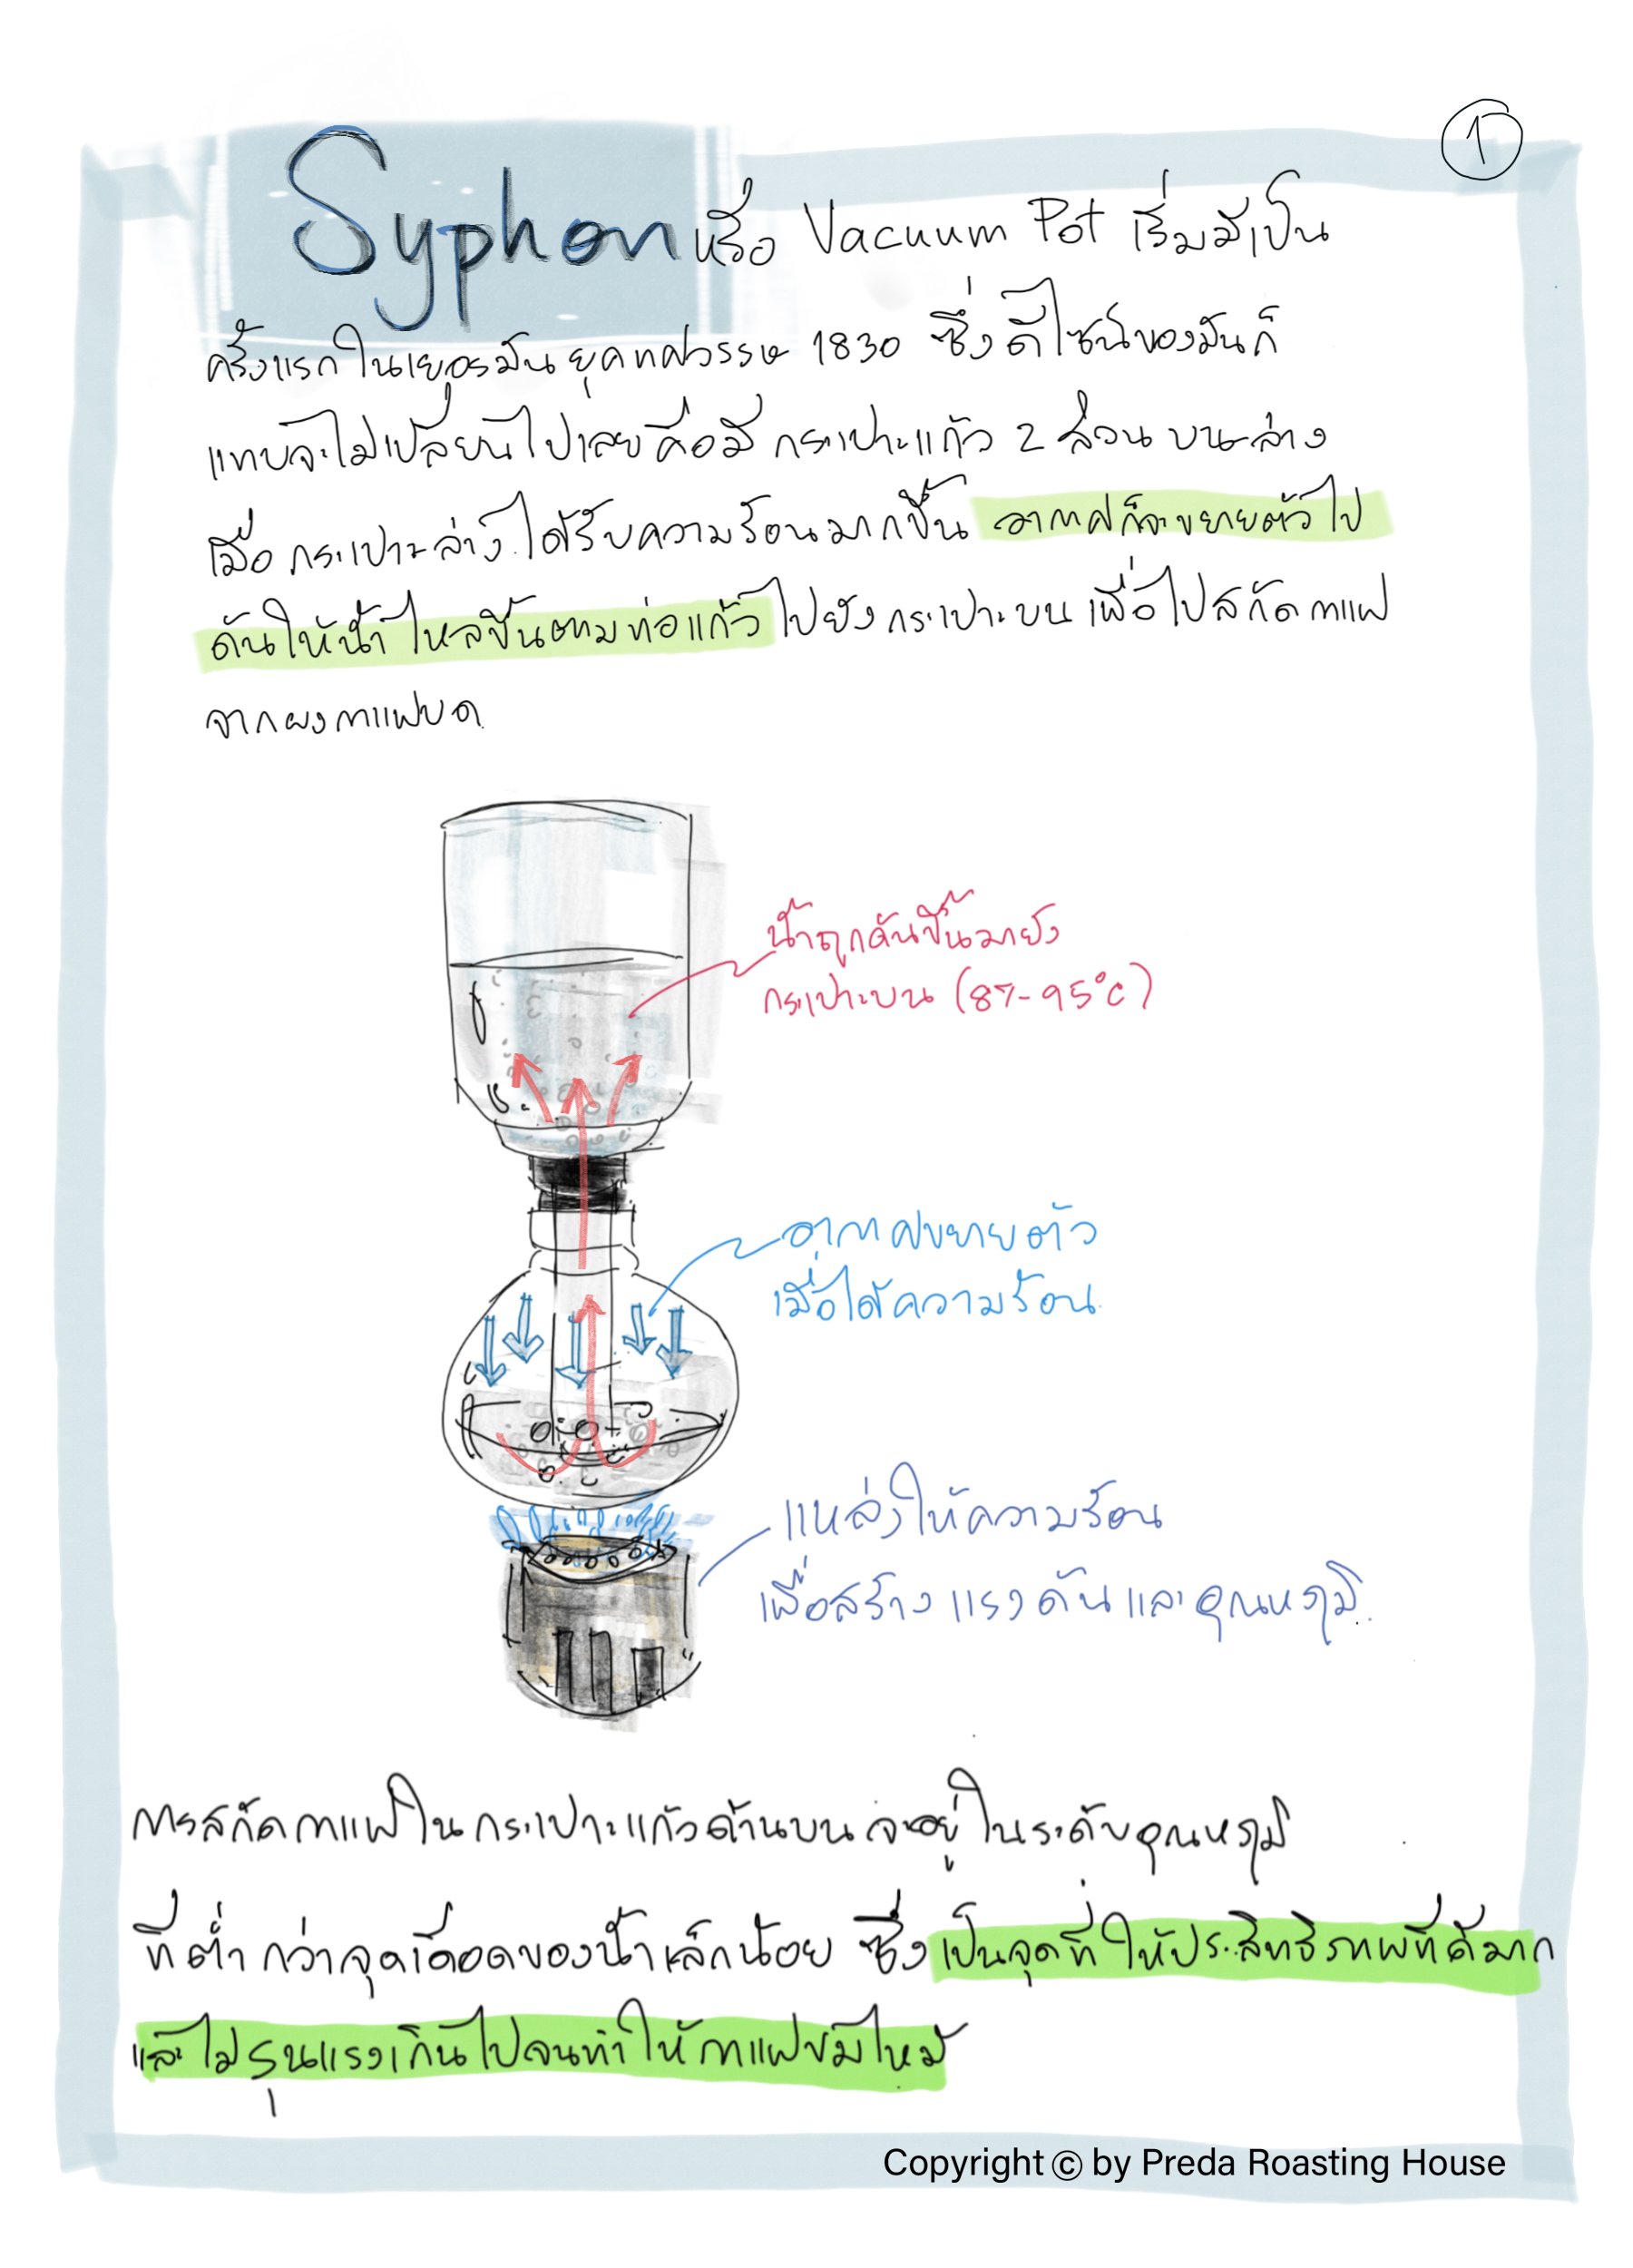 1
Syphon หรือ Vacuum Pot เริ่มมีเป็น
ครั้งแรกในเยอรมัน ยุคทศวรรษ 1830 ซึ่งดีไซน์ของมันก็
แทบจะไม่เปลี่ยนไปเลย คือมี กระเปาะแก้ว 2 ส่วน บน-ล่าง
เมื่อ กระเปาะล่าง ได้รับความร้อนมากขึ้น อากาศก็จะขยายตัวไป
ดันให้น้ำ ไหลขึ้นตามท่อแก้ว ไปยังกระเปาะบน เพื่อไปสกัดกาแฟ
จากผงกาแฟบด
น้ำถูกดันขึ้นมายัง
กระเปาะบน (87-95°C)
อากาศขยายตัว
เมื่อได้ความร้อน
แหล่งให้ความร้อน
เพื่อสร้าง แรงดัน และ อุณหภูมิ
การสกัดกาแฟใน กระเปาะแก้วด้านบน จะอยู่ในระดับอุณหภูมิ
ที่ต่ำกว่าจุดเดือดของน้ำเล็กน้อย ซึ่งเป็นจุดที่ให้ประสิทธิภาพที่ดีมาก
และไม่รุนแรงเกินไปจนทำให้กาแฟขมไหม้
Copyright © by Preda Roasting House